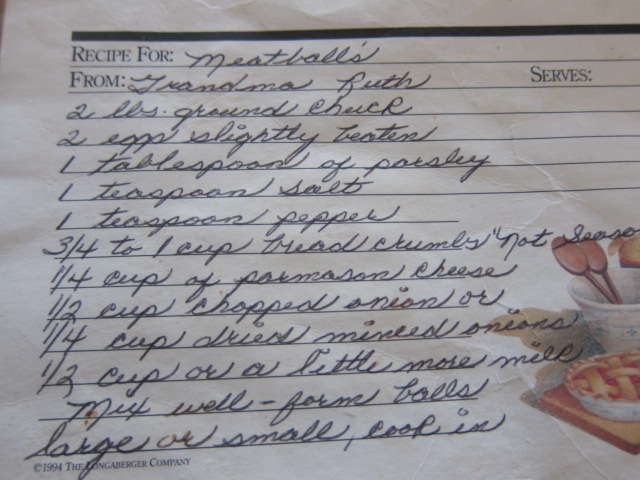 RECIPE FOR: Meatball's
FROM: Grandma Ruth SERVES:
2 lbs. ground chuck
2 egg slightly beaten
1 tablespoon of parsley
1 teaspoon salt
1 teaspoon pepper
3/4 to 1 cup bread crumbs "not Seaso
1/4 cup of parmason cheese
1/2 cup chopped onion or
1/4 cup dried minced onions
1/2 cup or a little more milk
Mix well - form balls
large or small, cook in
©1994 THE LONGABERGER COMPANY